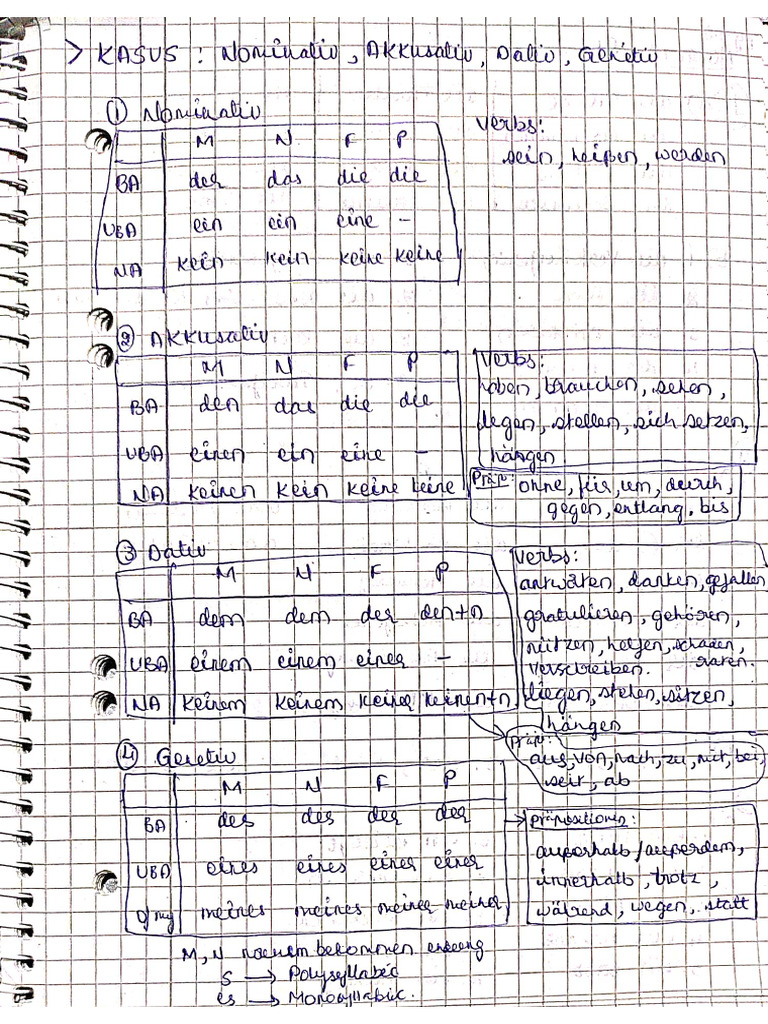 > KASUS : Nominativ, AKKusativ, Dativ, Genetiv
① Nominativ
M N F P
BA der das die die
UBA ein ein eine -
NA kein kein keine keine
Verbs:
sein, heißen, werden
② AKKusativ
M N F P
BA den das die die
UBA einen ein eine -
NA keinen kein keine keine
Verbs:
haben, brauchen, sehen,
legen, stellen, sich setzen,
hängen
Präp: ohne, für, um, durch,
gegen, entlang, bis
③ Dativ
M N F P
BA dem dem der den+n
UBA einem einem einer -
NA keinem keinem keiner keinen+n
Verbs:
antwarten, danken, gefallen
gratulieren, gehören,
nützen, helfen, schaden,
verschreiben. raten.
liegen, stehen, sitzen,
hängen
Präp:
aus, von, nach, zu, mit, bei,
seit, ab
④ Genetiv
M N F P
BA des des der der
UBA eines eines einer einer
meines meines meiner meiner
Präpositionen:
außerhalb/außerdem,
innerhalb, trotz,
während, wegen, statt
M, N bekommen
s → Polysyllabic
es → Monosyllabic.